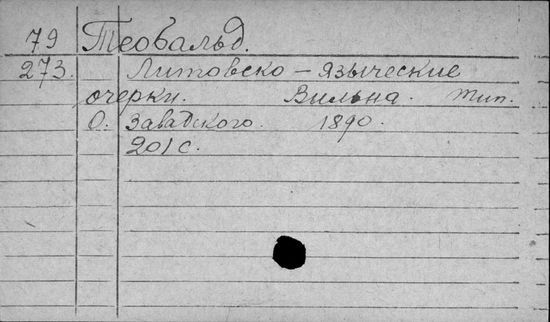 79 Теобальд.
273. Литовско – языческие
очерки. Вильна. Тип.
О. Завадского. 1890.
201 с.